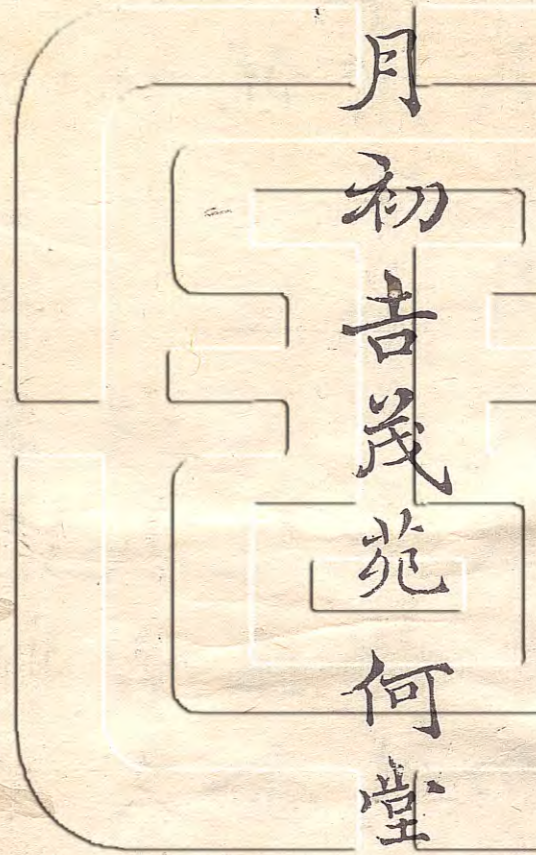 月初吉茂苑何堂